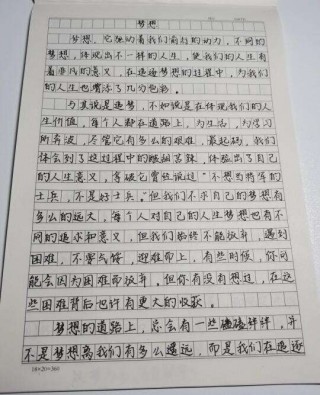 梦想
梦想,它驱动着我们前行的动力,不同的
梦想,体现出不一样的人生,使我们的人生有
着非凡的意义,在追逐梦想的过程中,为我们
的人生也增添了几分色彩。
与其说是追梦,不如说是在体现我们的人
生价值,每个人都在道路上,为生活,为学习
所奔波,尽管它有多么的艰难,最起码,我们
体会到了这过程中的酸甜苦辣,体验出了自己
的人生意义,拿破仑曾经说过"不想当将军的
士兵,不是好士兵,"但我们不求自己的梦想有
多么的远大,每个人对自己的人生梦想也有不
同的追求和意义,但我们始终不能放弃,遇到
困难,不要气馁,迎难而上,有些时候,你可
能会因为困难而放弃,但你有没有想过,在这
些困难背后也许有更大的收获。
梦想的道路上,总会有一些磕磕绊绊,并
不是梦想离我们有多么遥远,而是我们在追逐
18×20=360